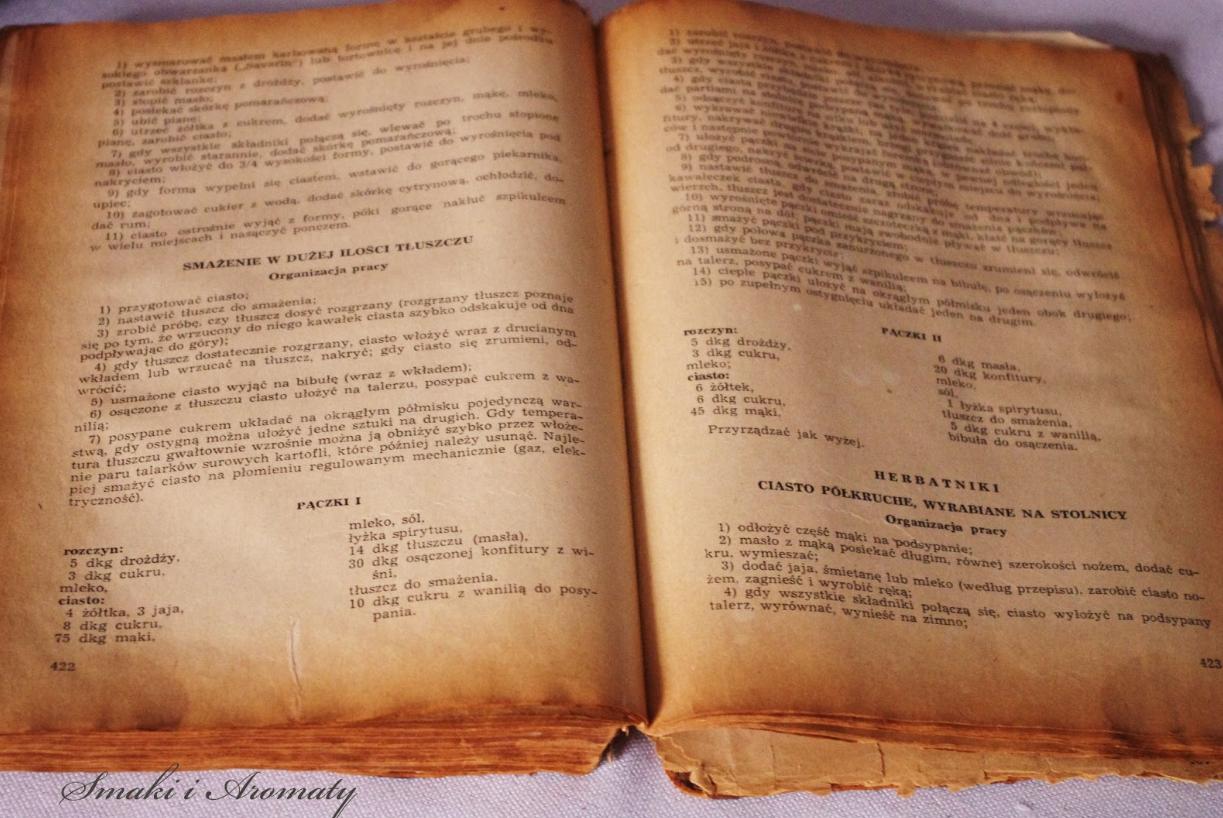 1) wysmarować masłem karbowaną formę w kształcie grubego i wy-
sokiego obwarzanka („Savarin") lub tortownicę i na jej dnie pośrodku
postawić szklankę;
2) zarobić rozczyn z drożdży, postawić do wyrośnięcia;
3) stopić masło;
4) posiekać skórkę pomarańczową;
5) ubić pianę;
6) utrzeć żółtka z cukrem, dodać wyrośnięty rozczyn, mąkę, mleko,
pianę, zarobić ciasto;
7) gdy wszystkie składniki połączą się, wlewać po trochu stopione
masło, wyrobić starannie, dodać skórkę pomarańczową;
8) ciasto włożyć do 3/4 wysokości formy, postawić do wyrośnięcia pod
nakryciem;
9) gdy forma wypełni się ciastem, wstawić do gorącego piekarnika,
upiec;
10) zagotować cukier z wodą, dodać skórkę cytrynową, ochłodzić, do-
dać rum;
11) ciasto ostrożnie wyjąć z formy, póki gorące nakłuć szpikulcem
w wielu miejscach i nasączyć ponczem.
SMAŻENIE W DUŻEJ ILOŚCI TŁUSZCZU
Organizacja pracy
1) przygotować ciasto;
2) nastawić tłuszcz do smażenia;
3) zrobić próbę, czy tłuszcz dosyć rozgrzany (rozgrzany tłuszcz poznaje
się po tym, że wrzucony do niego kawałek ciasta szybko odskakuje od dna
podpływając do góry);
4) gdy tłuszcz dostatecznie rozgrzany, ciasto włożyć wraz z drucianym
wkładem lub wrzucać na tłuszcz, nakryć; gdy ciasto się zrumieni, od-
wrócić;
5) usmażone ciasto wyjąć na bibułę (wraz z wkładem);
6) osączone z tłuszczu ciasto ułożyć na talerzu, posypać cukrem z wa-
nilią;
7) posypane cukrem układać na okrągłym półmisku pojedynczą war-
stwą, gdy ostygną można ułożyć jedne sztuki na drugich. Gdy tempera-
tura tłuszczu gwałtownie wzrośnie można ją obniżyć szybko przez włoże-
nie paru talarków surowych kartofli, które później należy usunąć. Najle-
piej smażyć ciasto na płomieniu regulowanym mechanicznie (gaz, elek-
tryczność).
PĄCZKI I
rozczyn:
5 dkg drożdży,
3 dkg cukru,
mleko,
ciasto:
4 żółtka, 3 jaja,
8 dkg cukru,
75 dkg mąki,
mleko, sól,
łyżka spirytusu,
14 dkg tłuszczu (masła),
30 dkg osączonej konfitury z wi-
śni,
tłuszcz do smażenia.
10 dkg cukru z wanilią do posy-
pania.
422
1) zarobić rozczyn, postawić do
3) gdy wszystkie składniki
tłuszcz, wyrobić ciasto,
4) gdy ciasto
dać partiami na stolnicę
5) odsączyć konfiturę
6) wykrawać
fitury, nakrywać drugim krążkiem,
ców i następnie
7) ułożyć pączki na
od drugiego, nakryć
8) gdy podrosną, odwrócić na drugą stronę;
9) nastawić tłuszcz do smażenia, zrobić próbę temperatury wrzucając
kawałeczek ciasta, gdy ciasto zaraz odskakuje od dna i podpływa na
wierzch, tłuszcz jest dostatecznie nagrzany do smażenia pączków;
10) wyrośnięte pączki omieść szczoteczką z mąki, kłaść na gorący tłuszcz
górną stroną na dół; pączki mają swobodnie pływać w tłuszczu;
11) smażyć pączki pod przykryciem;
12) gdy połowa pączka zanurzonego w tłuszczu zrumieni się, odwrócić
i dosmażyć bez przykrycia;
13) usmażone pączki wyjąć szpikulcem na bibułę, po osączeniu wyłożyć
na talerz, posypać cukrem z wanilią;
14) ciepłe pączki ułożyć na okrągłym półmisku jeden obok drugiego;
15) po zupełnym ostygnięciu układać jeden na drugim.
PĄCZKI II
rozczyn:
5 dkg drożdży,
3 dkg cukru,
mleko;
ciasto:
6 żółtek,
6 dkg cukru,
45 dkg mąki,
6 dkg masła,
20 dkg konfitury,
mleko,
sól,
1 łyżka spirytusu,
tłuszcz do smażenia,
5 dkg cukru z wanilią,
bibuła do osączenia.
Przyrządzać jak wyżej.
HERBATNIKI
CIASTO PÓŁKRUCHE, WYRABIANE NA STOLNICY
Organizacja pracy
1) odłożyć część mąki na podsypanie;
2) masło z mąką posiekać długim, równej szerokości nożem, dodać cu-
kru, wymieszać;
3) dodać jaja, śmietanę lub mleko (według przepisu), zarobić ciasto no-
żem, zagnieść i wyrobić ręką;
4) gdy wszystkie składniki połączą się, ciasto wyłożyć na podsypany
talerz, wyrównać, wynieść na zimno;
423
Smaki i Aromaty